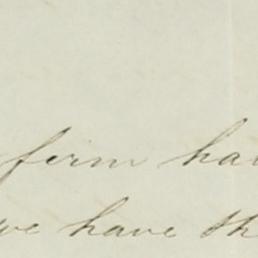 firm ha
we have th